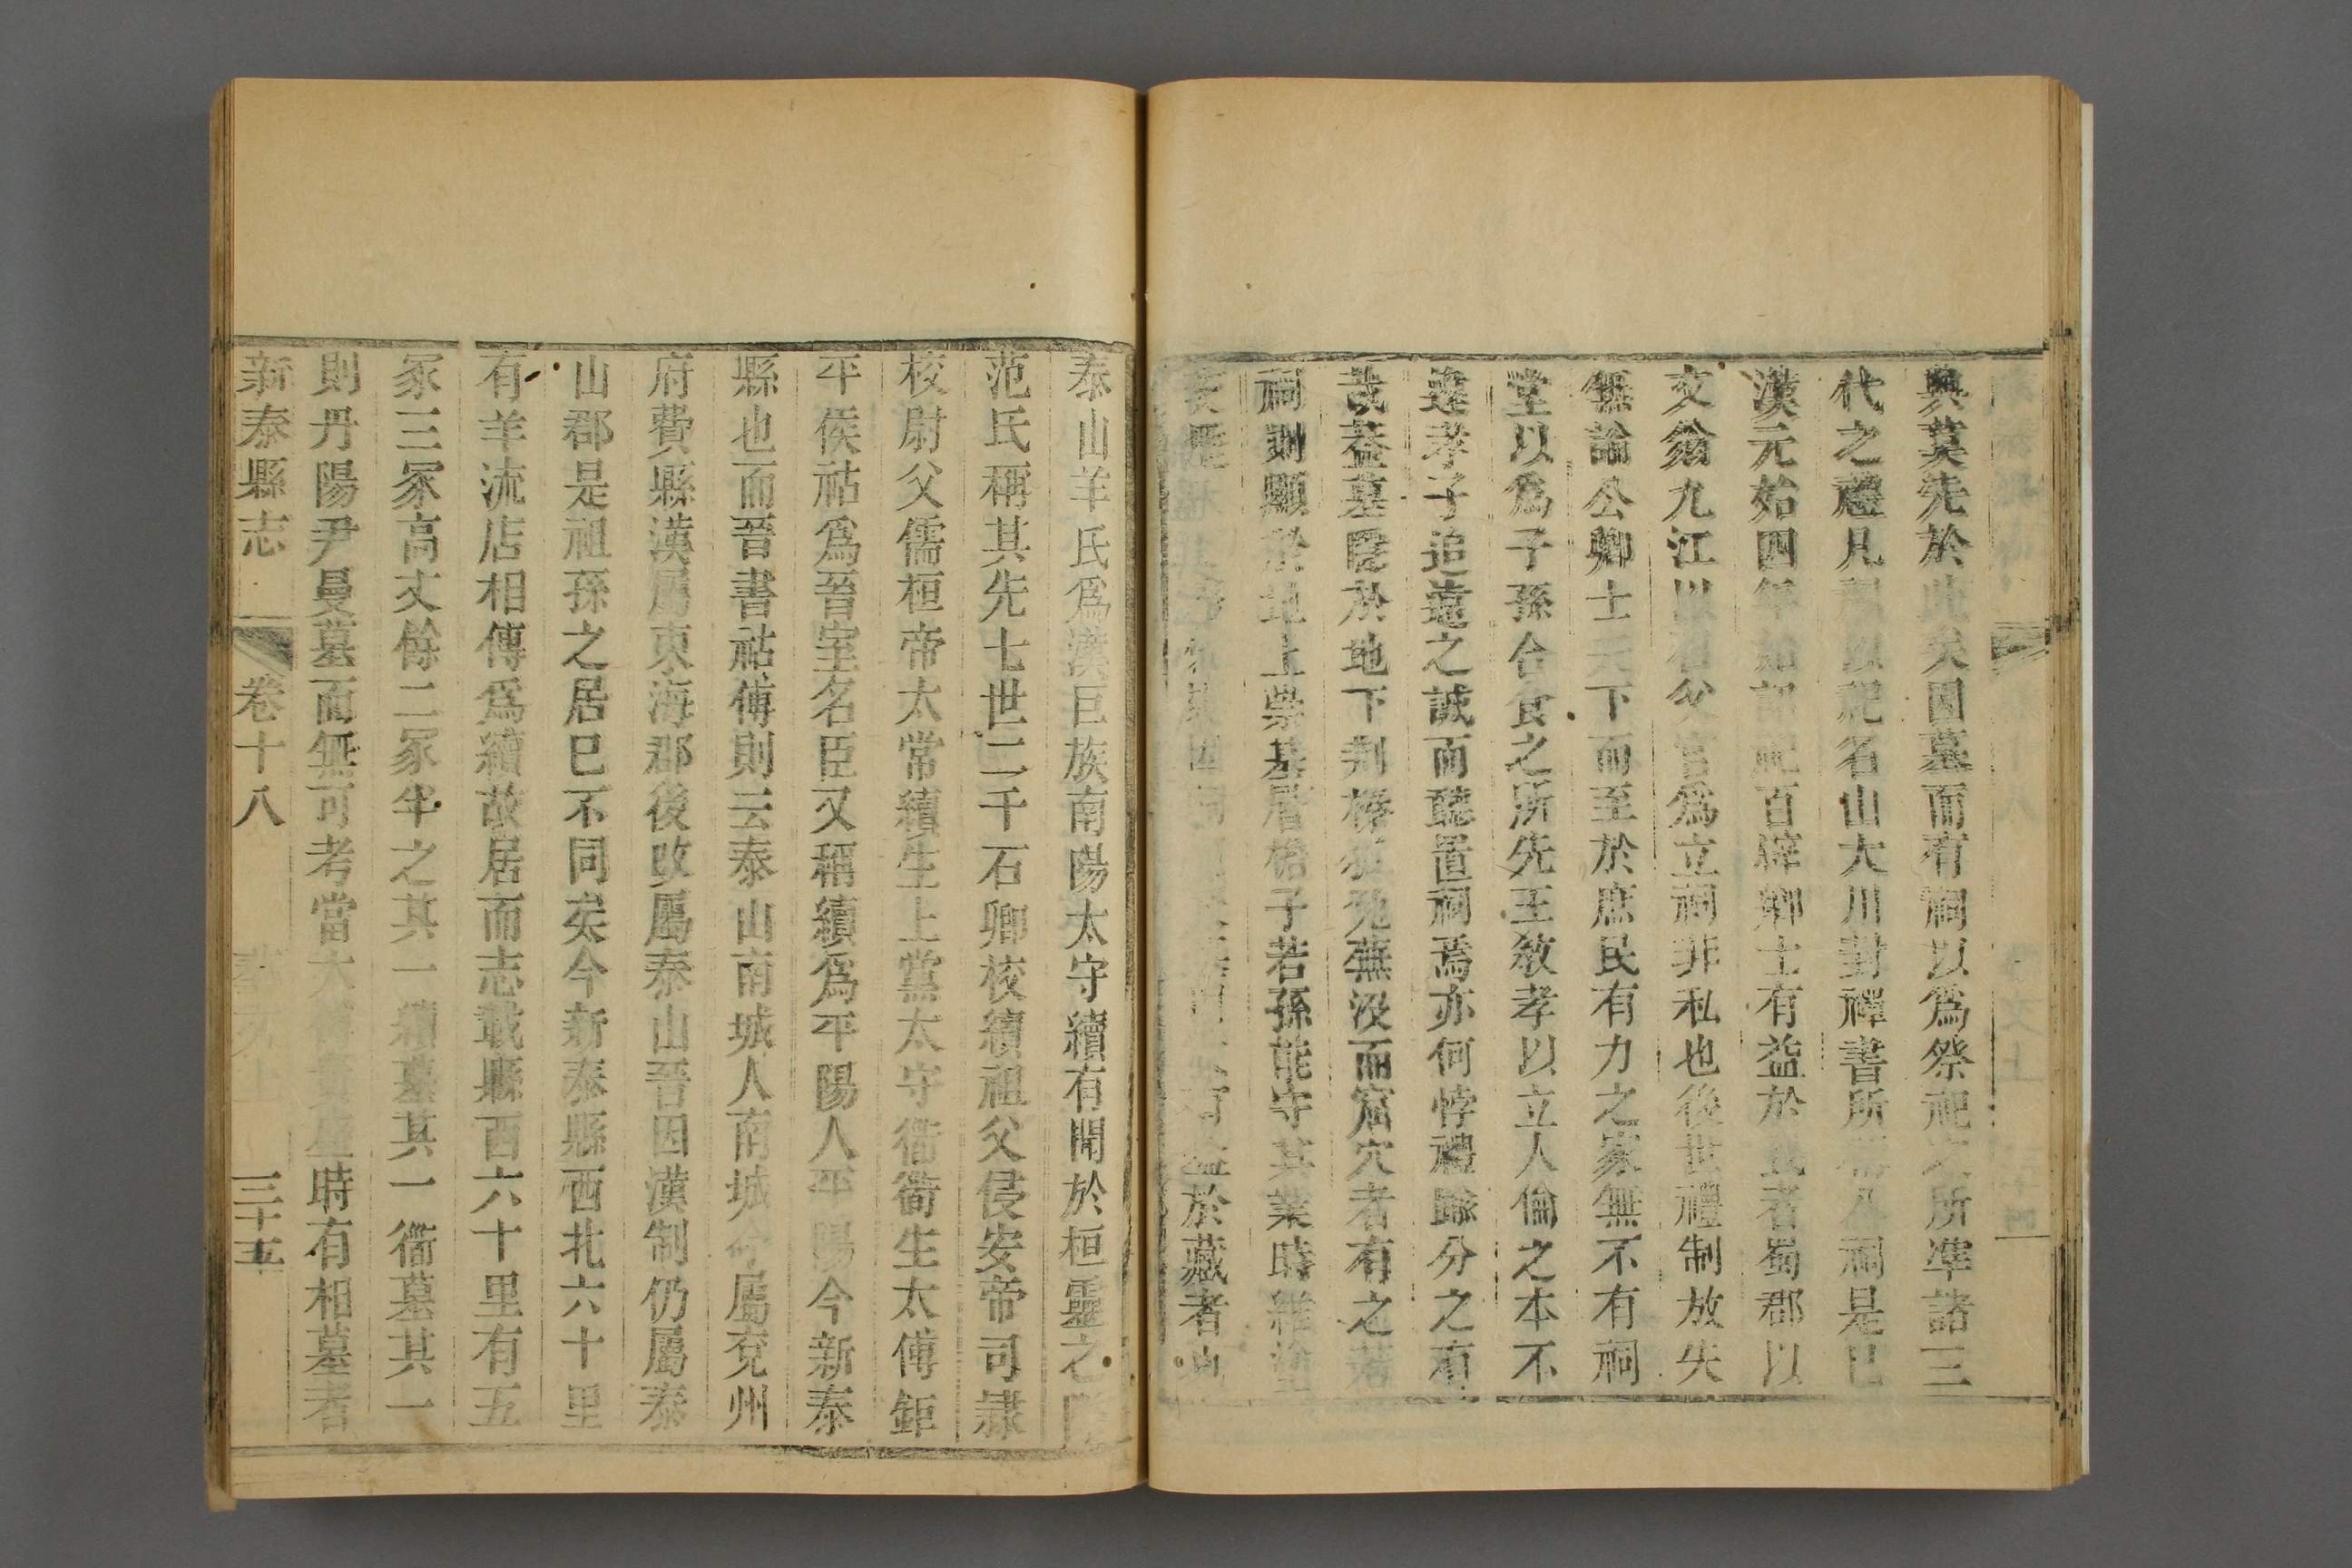 典莫先於此矣因墓而有祠以爲祭祀之所準諸三
代之禮凡祠以祀名山大川封禪書所 八祠是已
漢元始四年 詔祀百辟卿士有益於民者蜀郡以
文翁九江以召父官爲立祠非私也後世禮制放失
無論公卿士大下而至於庶民有力之家無不有祠
堂以爲子孫合食之所先王敎孝以立人倫之本不
違孝子追遠之誠而聽置祠焉亦何悖禮踰分之有
哉葢墓隱於地下荆榛狐兔蕪没而窟穴者有之若
祠則顯於地上崇基層檐子若孫能守其業時維塗
於藏者
泰山羊氏爲漢巨族南陽太守續有聞於桓靈之
范氏稱其先七世二千石卿校續祖父侵安帝司隷
校尉父儒桓帝太常續生上黨太守衜衜生太傅鉅
平侯祜爲晉室名臣又稱續爲平陽人平陽今新泰
縣也而晉書祜傳則云泰山南城人南城今屬兗州
府費縣漢屬東海郡後改屬泰山晉因漢制仍屬泰
山郡是祖孫之居已不同矣今新泰縣西北六十里
有羊流店相傳爲續故居而志載縣西六十里有五
冢三冢高丈餘二冢半之其一續墓其一衜墓其一
則丹陽尹曼墓而無可考當大 時有相墓者
新泰縣志
卷十八
藝文上
三十五